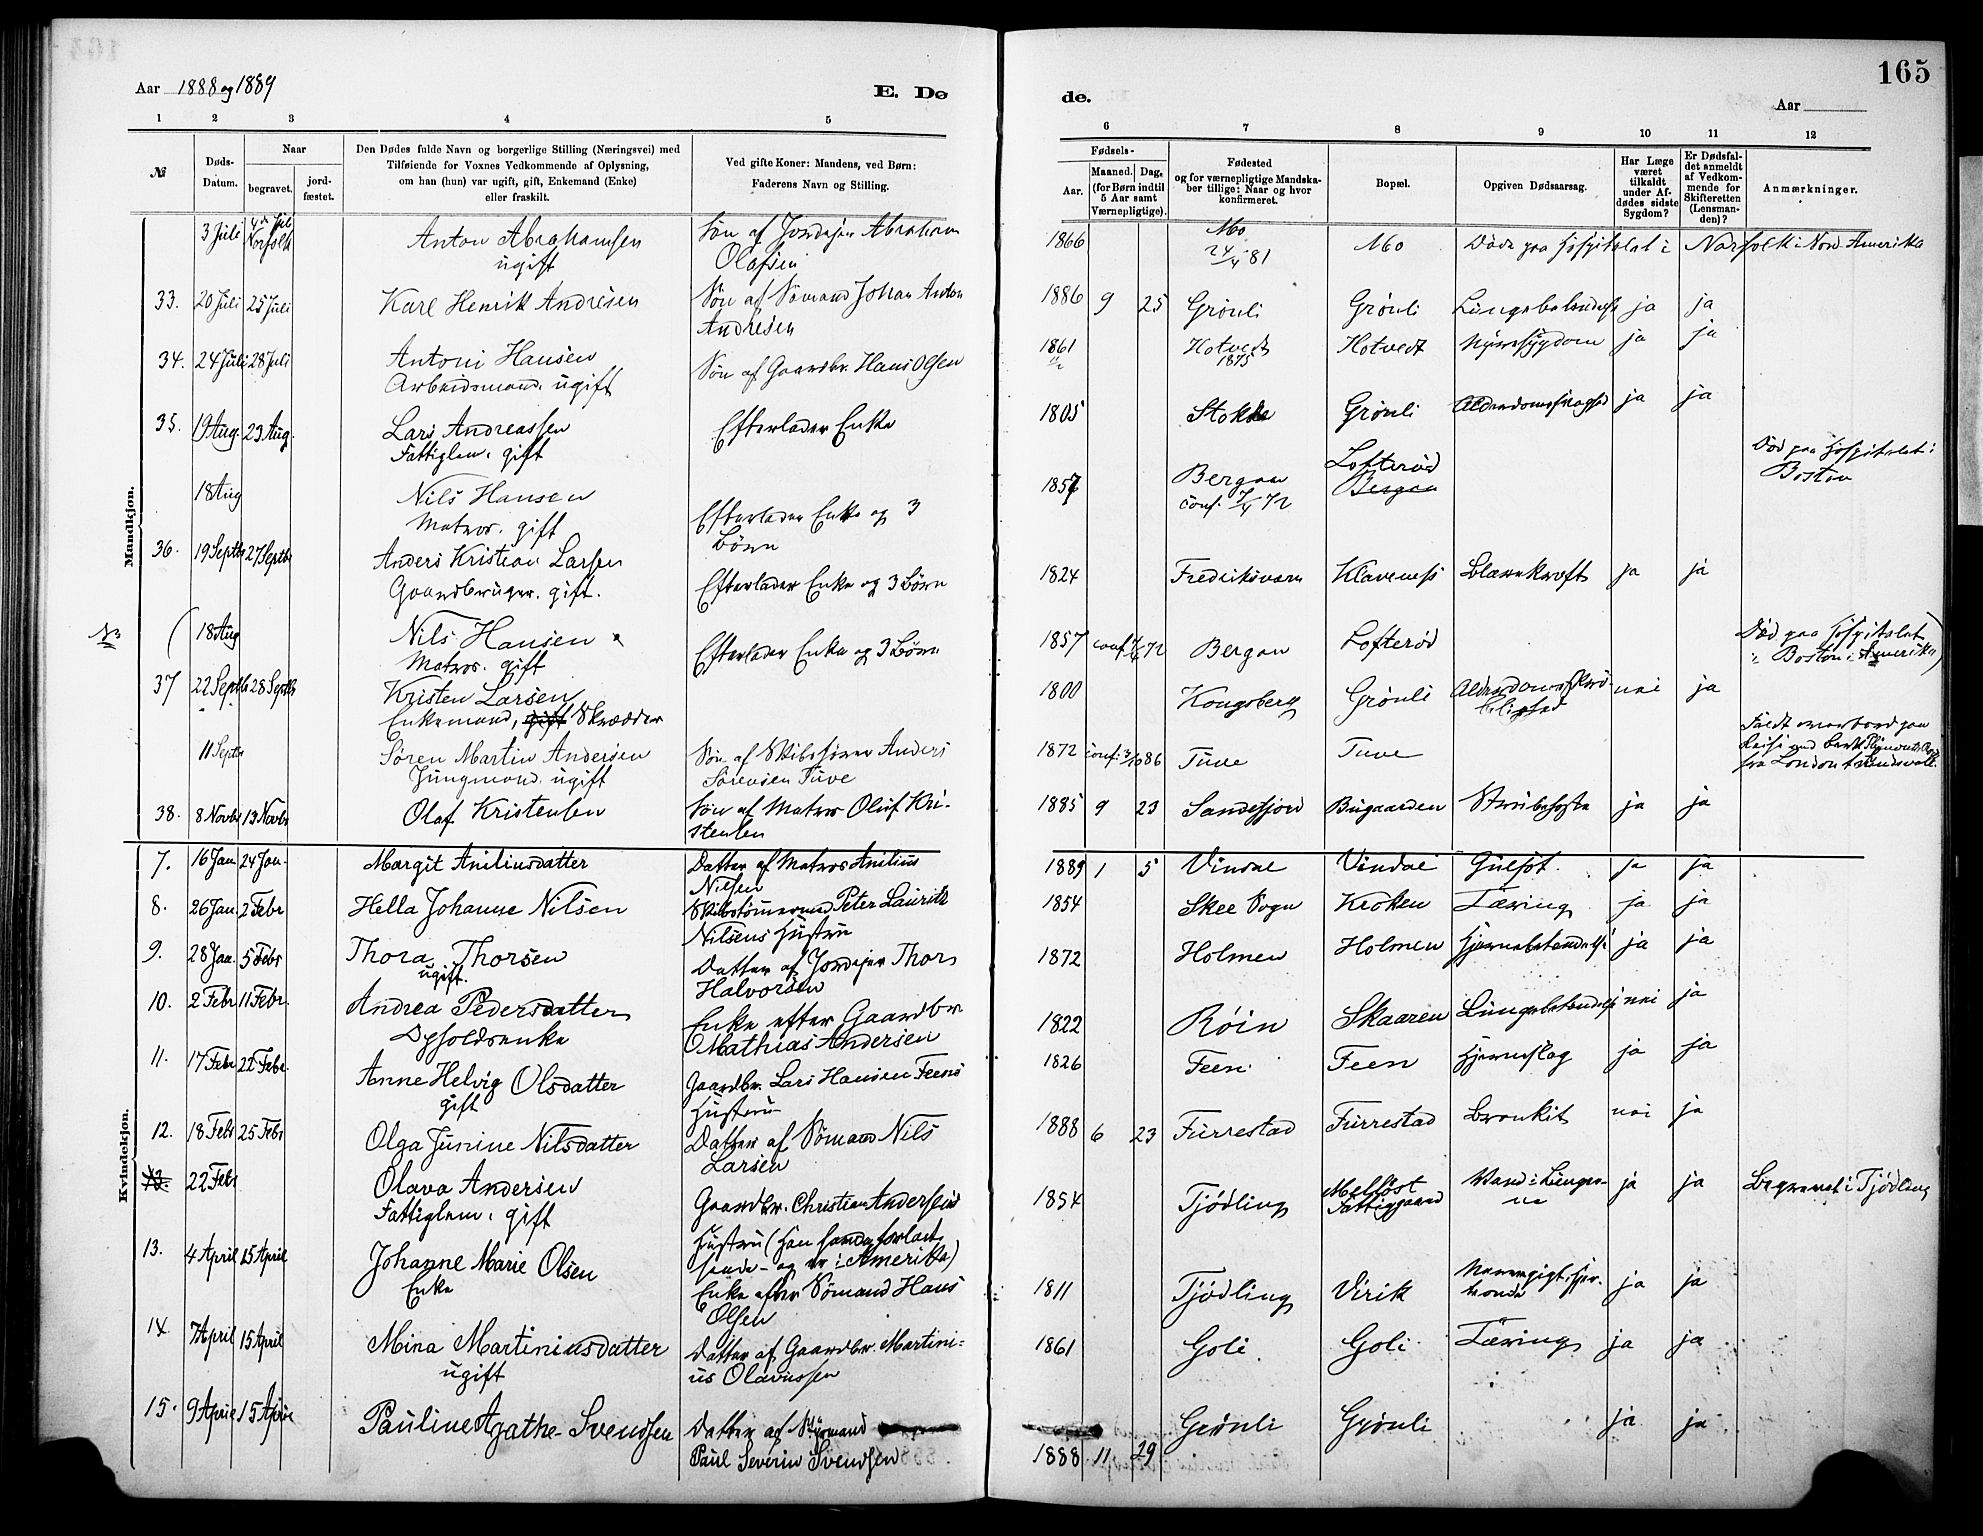 165
Aar 1888 og 1889
E. Dø
de.
Aar
1 2 3 4 5 6 7 8 9 10 11 12
№
Døds-
Datum.
Naar
begravet.
jord-
fæstet.
Den Dødes fulde Navn og borgerlige Stilling (Næringsvei) med
Tilføiende for Voxnes Vedkommende af Oplysning,
om han (hun) var ugift, gift, Enkemand (Enke)
eller fraskilt.
Ved gifte Koner: Mandens, ved Børn:
Faderens Navn og Stilling.
Fødsels-
Aar.
Maaned. Dag.
(for Børn indtil
5 Aar samt
Værnepligtige).
Fødested
og for værnepligtige Mandska-
ber tillige: Naar og hvor
konfirmeret.
Bopæl.
Opgiven Dødsaarsag.
Har Læge
været
tilkaldt
under Af-
dødes sidste
Sygdom?
Er Dødsfal-
det anmeldt
af Vedkom-
mende for
Skifteretten
(Lensman-
den)?
Anmærkninger.
Mandkjøn.
3 Juli 4de Juli Norfolk Anton Abrahamsen Søn af Jordejer Abraham 1866 Mo Mo Døde paa Hospitalet i Norfolk i Nord-Amerika
ugift Olafsen 24/4 81
33. 20 Juli 25 Juli Karl Henrik Andresen Søn af Sømand Johan Anton 1886 9 25 Grønli Grønli Lungebetændelse ja ja
Andresen
34. 24 Juli 28 Juli Antoni Hansen Søn af Gaardbr. Hans Olsen 1861 Hotvedt Hotvedt Nyresygdom ja ja
Arbeidsmand. ugift 1875
35. 19 Aug. 23 Aug. Lars Andreassen Efterlader Enke 1805 Stokke Grønli Alderdomssvaghed ja ja
Fattiglem. gift
18 Aug Nils Hansen Efterlader Enke og 3 1857 Bergan Lofterød Død paa Hospitalet i
Matros. gift Børn conf. 7/4 72 Bergan Boston
36. 19 Septbr 27 Septbr Anders Kristian Larsen Efterlader Enke og 3 Børn 1824 Fredriksværn Klaveness Blærekræft ja ja
Gaardbruger. gift.
( 18 Aug Nils Hansen Efterlader Enke og 3 Børn 1857 conf. 7/4 72 Bergan Lofterød Død paa Hospitalet
Matros. gift i Boston i Amerika)
37 22 Septb 28 Septbr Kristen Larsen 1800 Kongsberg Grønli nei ja
Enkemand, gift Skrædder
11 Septbr Søren Martin Andersen Søn af Skibsfører Anders 1872 conf. 3/10 86 Tuve Tuve Faldt overbord paa
Jungmand. ugift Sørensen Tuve Reise med Bark
fra London t. Sundsvall.
38. 8 Novbr 13 Novbr Olaf Kristensen Søn af Matros Oluf Kri- 1885 9 23 Sandefjord Bugaarden Strubehoste ja ja
stensen
Kvindekjøn.
7. 16 Jan 24 Jan. Margit Aniliusdatter Datter af Matros Anilius 1889 1 5 Vindal Vindal Gulsot. ja ja
Nilsen
8. 26 Jan. 2 Febr Hella Johanne Nilsen Skibstømmermd Peter Lauritz 1854 Skee Sogn Kroken Tæring ja ja
Nilsens Hustru
9. 28 Jan. 5 Febr Thora Thorsen Datter af Jordejer Thor 1872 Holmen Holmen Hjernebetændelse ja ja
ugift. Halvorsen
10. 2 Febr 11 Febr. Andrea Pedersdatter Enke efter Gaardbr 1822 Røin Skaaren Lungebetændelse nei ja
Opholdsenke Mathias Andersen
11. 17 Febr 22 Febr. Anne Helvig Olsdatter Gaardbr. Lars Hansen Feens 1826 Feen. Feen Hjerneslag ja ja
gift Hustru
12. 18 Febr 25 Febr Olga Junine Nilsdatter Datter af Sømand Nils 1888 6 23 Furrestad Furrestad Bronkit nei ja
Larsen
13. 22 Febr Olava Andersen Gaardbr. Christian Andersens 1854 Tjødling Melløst Vand i Lunger- ja ja Begravet i Tjødling
Fattiglem. gift Hustru (Han forladt Fattiggaard ne
hende - og er i Amerika)
13. 4 April 15 April Johanne Marie Olsen Enke efter Sømand Hans 1811 Tjødling Virik ja ja
Enke Olsen
14. 7 April 15 April Mina Martiniusdatter Datter af Gaardbr. Martini- 1861 Goli Goli Tæring ja ja
ugift us Olavussen
15. 9 April 15 April Pauline Agathe Svendsen Datter af Sømand Grønli Grønli ja ja
Paul Severin Svendsen 1888 11 29